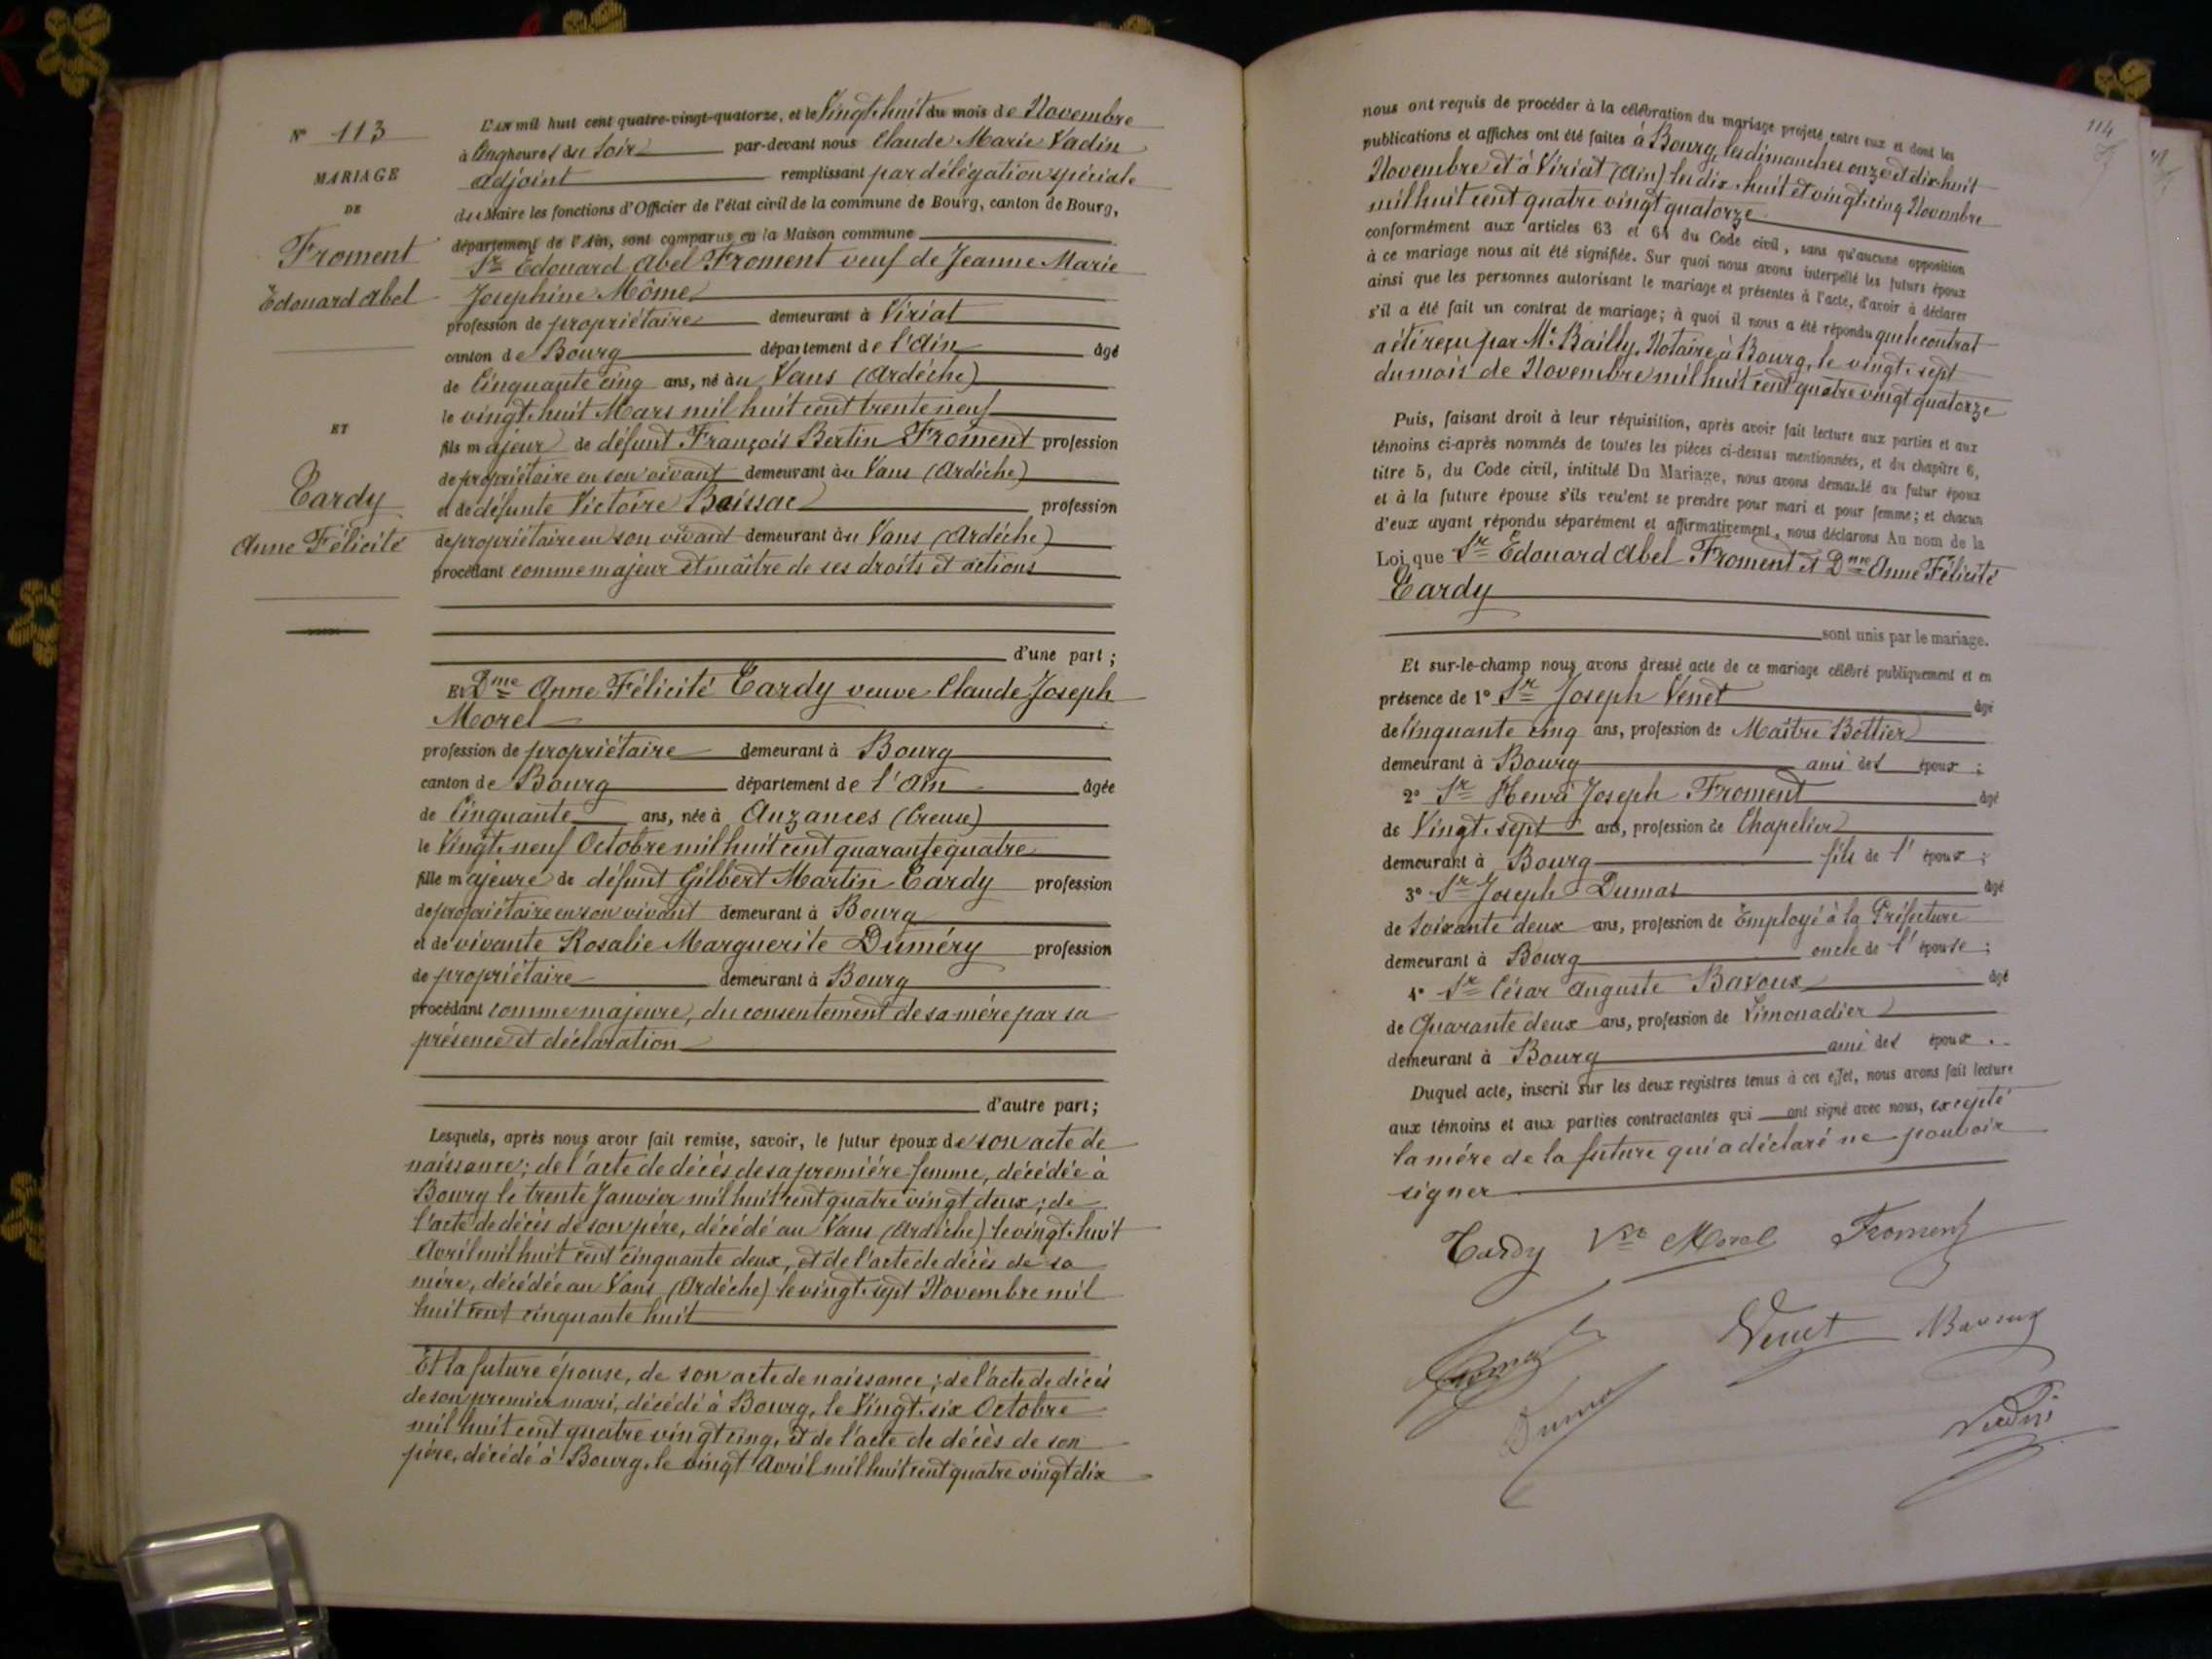 N° 113
MARIAGE
DE
Froment
Edouard Abel
ET
Tardy
Anne Félicité
L'an mil huit cent quatre-vingt-quatorze, et le Vingt-huit du mois de Novembre
à Cinq heures du Soir par-devant nous Claude Marie Vadin
adjoint remplissant par délégation spéciale
du Maire les fonctions d'Officier de l'état civil de la commune de Bourg, canton de Bourg,
département de l'Ain, sont comparus en la Maison commune
Sr Edouard Abel Froment veuf de Jeanne Marie
Josephine Môme
profession de propriétaire demeurant à Viriat
canton de Bourg département de l'Ain âgé
de Cinquante cinq ans, né au Vans (Ardèche)
le vingt-huit Mars mil huit cent trente neuf
fils majeur de défunt François Bertin Froment profession
de propriétaire en son vivant demeurant au Vans (Ardèche)
et de défunte Victoire Boissac profession
de propriétaire en son vivant demeurant au Vans (Ardèche)
procédant comme majeur et maître de ses droits et actions
d'une part ;
Et Dme Anne Félicité Tardy veuve Claude Joseph
Morel
profession de propriétaire demeurant à Bourg
canton de Bourg département de l'Ain âgée
de Cinquante ans, née à Auzances (Creuse)
le Vingt-neuf Octobre mil huit cent quarante quatre
fille majeure de défunt Gilbert Martin Tardy profession
de propriétaire en son vivant demeurant à Bourg
et de vivante Rosalie Marguerite Duméry profession
de propriétaire demeurant à Bourg
procédant comme majeure, du consentement de sa mère par sa
présence et déclaration
d'autre part ;
Lesquels, après nous avoir fait remise, savoir, le futur époux de son acte de
naissance ; de l'acte de décès de sa première femme, décédée à
Bourg le trente Janvier mil huit cent quatre vingt deux ; de
l'acte de décès de son père, décédé au Vans (Ardèche) le vingt-huit
Avril mil huit cent cinquante deux, et de l'acte de décès de sa
mère, décédée au Vans (Ardèche) le vingt-sept Novembre mil
huit cent cinquante huit
Et la future épouse, de son acte de naissance ; de l'acte de décès
de son premier mari, décédé à Bourg, le Vingt-six Octobre
mil huit cent quatre vingt cinq, et de l'acte de décès de son
père, décédé à Bourg, le vingt Avril mil huit cent quatre vingt dix
114
nous ont requis de procéder à la célébration du mariage projeté entre eux et dont les
publications et affiches ont été faites à Bourg, les dimanches onze et dix-huit
Novembre et à Viriat (Ain) les dix-huit et vingt-cinq Novembre
mil huit cent quatre vingt quatorze
conformément aux articles 63 et 64 du Code civil, sans qu'aucune opposition
à ce mariage nous ait été signifiée. Sur quoi nous avons interpellé les futurs époux
ainsi que les personnes autorisant le mariage et présentes à l'acte, d'avoir à déclarer
s'il a été fait un contrat de mariage ; à quoi il nous a été répondu que le contrat
a été reçu par Me Bailly, Notaire à Bourg, le vingt-sept
du mois de Novembre mil huit cent quatre vingt quatorze
Puis, faisant droit à leur réquisition, après avoir fait lecture aux parties et aux
témoins ci-après nommés de toutes les pièces ci-dessus mentionnées, et du chapitre 6,
titre 5, du Code civil, intitulé Du Mariage, nous avons demandé au futur époux
et à la future épouse s'ils veulent se prendre pour mari et pour femme ; et chacun
d'eux ayant répondu séparément et affirmativement, nous déclarons Au nom de la
Loi que Sr Edouard Abel Froment et Dme Anne Félicité
Tardy
sont unis par le mariage.
Et sur-le-champ nous avons dressé acte de ce mariage célébré publiquement et en
présence de 1° Sr Joseph Venet âgé
de Cinquante cinq ans, profession de Maître Bottier
demeurant à Bourg ami des époux ;
2° Sr Henri Joseph Froment âgé
de Vingt-sept ans, profession de Chapelier
demeurant à Bourg fils de l'époux ;
3° Sr Joseph Dumas âgé
de Soixante deux ans, profession de Employé à la Préfecture
demeurant à Bourg oncle de l'épouse ;
4° Sr César Auguste Bavoux âgé
de Quarante deux ans, profession de Limonadier
demeurant à Bourg ami des époux.
Duquel acte, inscrit sur les deux registres tenus à cet effet, nous avons fait lecture
aux témoins et aux parties contractantes qui ont signé avec nous, excepté
la mère de la future qui a déclaré ne pouvoir
signer
Tardy Vve Morel Froment
Venet Bavoux
Dumas
Vadin